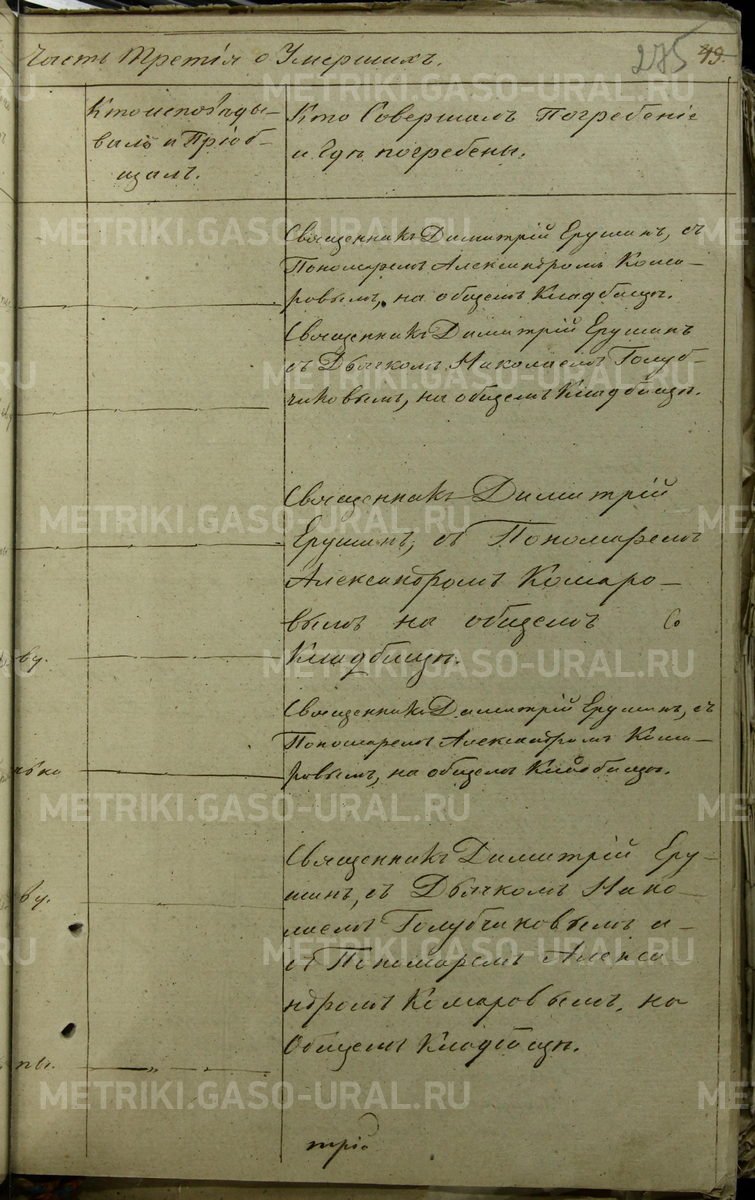 Часть Третія о Умершихъ.
275
49.
Кто исповѣды-
валъ и Пріоб-
щалъ.
Кто Совершалъ Погребеніе
и гдѣ погребены.
Священникъ Димитрій Ерушинъ, съ
Пономаремъ Александромъ Кома-
ровымъ, на общемъ Кладбищѣ.
Священникъ Димитрій Ерушинъ
съ Дьячкомъ Николаемъ Голуб-
чиковымъ, на общемъ Кладбищѣ.
Священникъ Димитрій
Ерушинъ, съ Пономаремъ
Александромъ Комаро-
вымъ на общемъ
Кладбищѣ.
ву.
Священникъ Димитрій Ерушинъ, съ
Пономаремъ Александромъ Кома-
ровымъ, на общемъ Кладбищѣ.
Священникъ Димитрій Еру-
шинъ, съ Дьячкомъ Нико-
лаемъ Голубчиковымъ и
съ Пономаремъ Алекса
ндромъ Комаровымъ, на
Общемъ Кладбищѣ.
ву.
ны.
тріо
METRIKI.GASO-URAL.RU